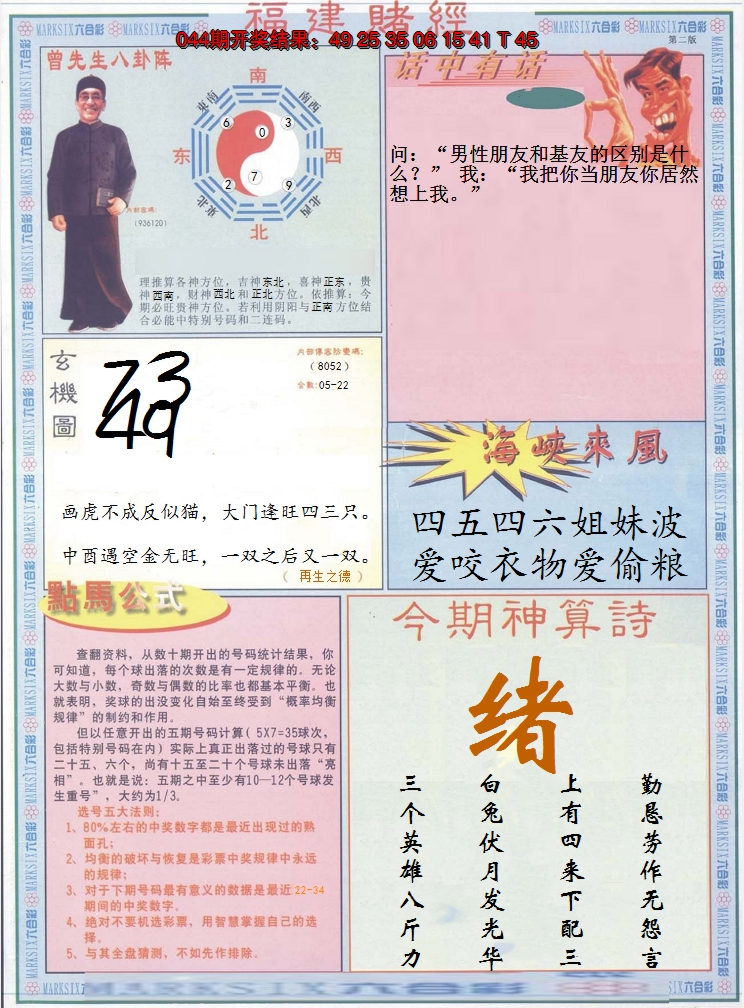 福建賭經
MARKSIX六合彩 MARKSIX六合彩 MARKSIX六合彩 MARKSIX六合彩
044期开奖结果：49 25 35 06 15 41 T 45
第二版
曾先生八卦阵
南
東南
南西
6
0
3
东
西
2
7
9
東北
北西
北
內部密碼：
(936120)
理推算各神方位，吉神东北，喜神正东，贵
神西南，财神西北和正北方位。依推算：今
期必旺贵神方位。若利用阴阳与正南方位结
合必能中特别号码和二连码。
话中有话
问：“男性朋友和基友的区别是什
么？” 我：“我把你当朋友你居然
想上我。”
玄機圖
73
49
(8052)
合數:05-22
画虎不成反似猫，大门逢旺四三只。
中酉遇空金无旺，一双之后又一双。
（ 再生之德 ）
海峽來風
四五四六姐妹波
爱咬衣物爱偷粮
點馬公式
查翻资料，从数十期开出的号码统计结果，你
可知道，每个球出落的次数是有一定规律的。无论
大数与小数，奇数与偶数的比率也都基本平衡。也
就表明，奖球的出没变化自始至终受到“概率均衡
规律”的制约和作用。
但以任意开出的五期号码计算（5X7=35球次，
包括特别号码在内）实际上真正出落过的号球只有
二十五、六个，尚有十五至二十个号球未出落“亮
相”。也就是说：五期之中至少有10—12个号球发
生重号”，大约为1/3。
选号五大法则：
1、80%左右的中奖数字都是最近出现过的熟
面孔；
2、均衡的破坏与恢复是彩票中奖规律中永远
的规律；
3、对于下期号码最有意义的数据是最近22-34
期间的中奖数字。
4、绝对不要机选彩票，用智慧掌握自己的选
择。
5、与其全盘猜测，不如先作排除。
今期神算詩
绪
勤恳劳作无怨言
上有四来下配三
白兔伏月发光华
三个英雄八斤力
MARKSIX六合彩